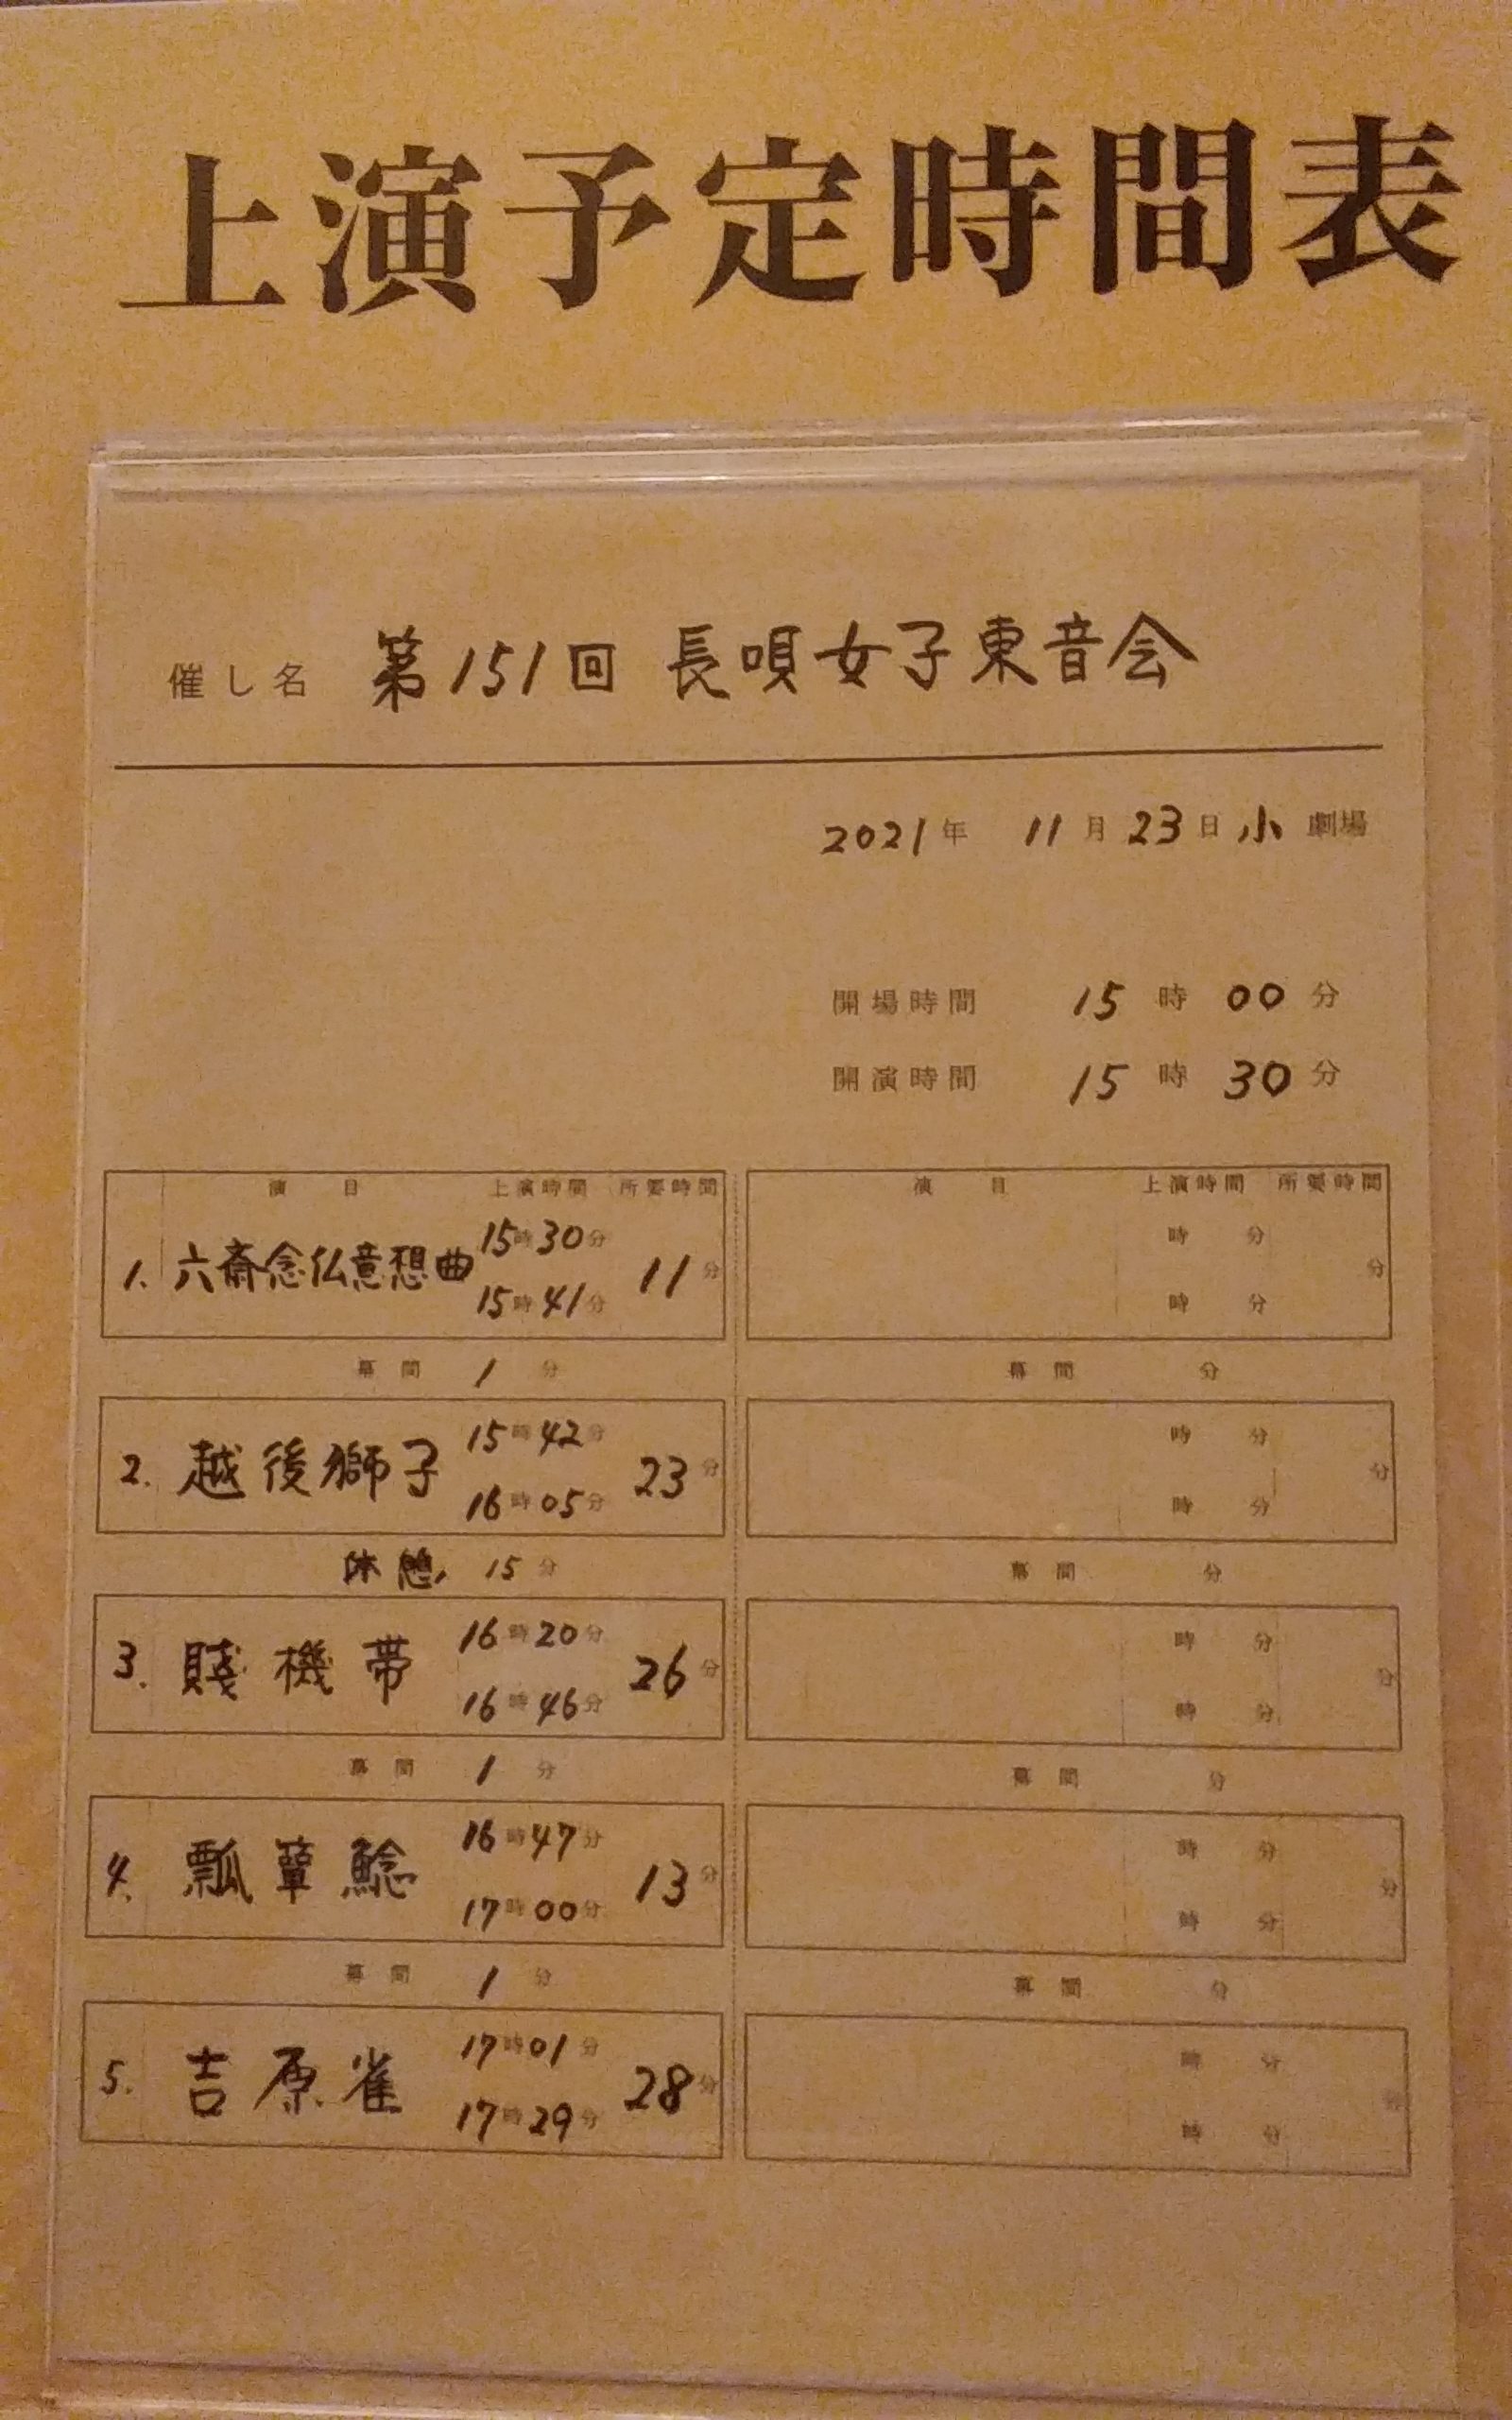 上演予定時間表
催し名 第151回 長唄女子東音会
2021年 11月23日 小 劇場
開場時間 15時00分
開演時間 15時30分
演目 上演時間 所要時間
1. 六斎念仏意想曲 15時30分 15時41分 11分
幕間 1分
2. 越後獅子 15時42分 16時05分 23分
休憩 15分
3. 賤機帯 16時20分 16時46分 26分
幕間 1分
4. 瓢簞鯰 16時47分 17時00分 13分
幕間 1分
5. 吉原雀 17時01分 17時29分 28分
演目 上演時間 所要時間
時 分
時 分
分
幕間 分
時 分
時 分
分
幕間 分
時 分
時 分
分
幕間 分
時 分
時 分
分
幕間 分
時 分
時 分
分